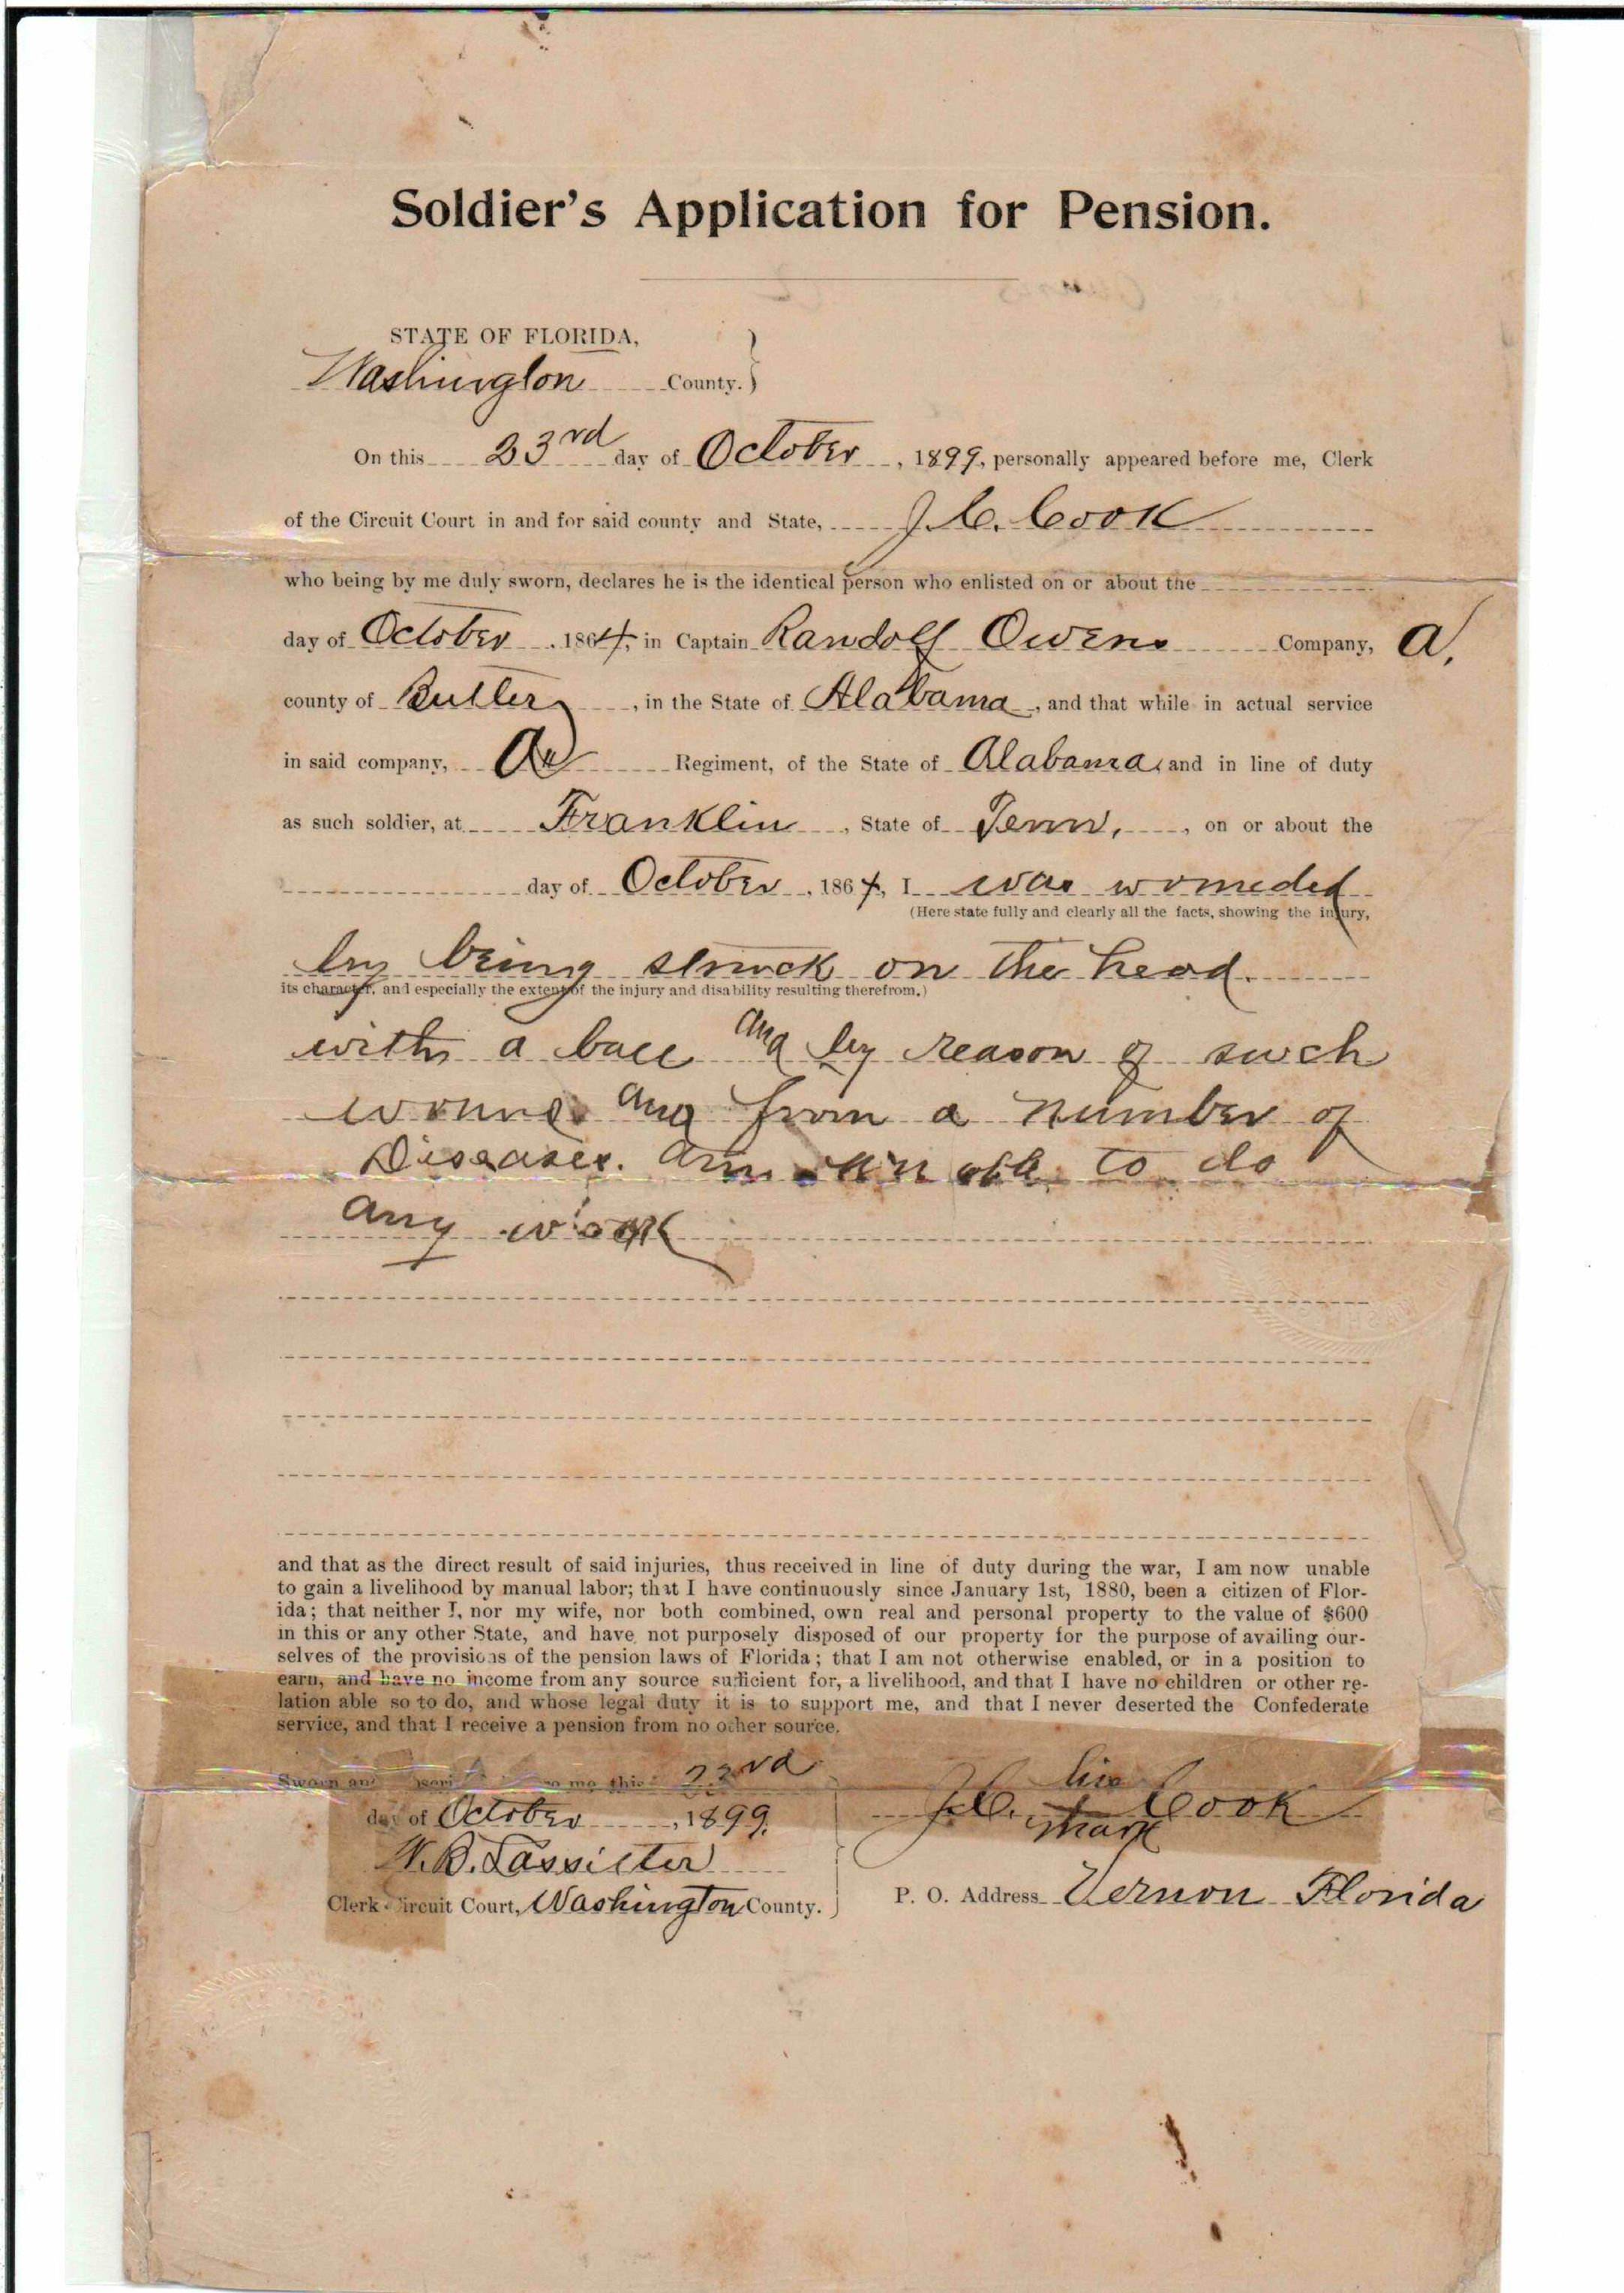 Soldier's Application for Pension.
STATE OF FLORIDA,
Washington County. }
On this 23rd day of October, 1899, personally appeared before me, Clerk
of the Circuit Court in and for said county and State, J. C. Cook
who being by me duly sworn, declares he is the identical person who enlisted on or about the
day of October, 1864, in Captain Randolf Owens Company, A,
county of Butler, in the State of Alabama, and that while in actual service
in said company, A Regiment, of the State of Alabama, and in line of duty
as such soldier, at Franklin, State of Tenn., on or about the
day of October, 1864, I was wounded
(Here state fully and clearly all the facts, showing the injury,
by being struck on the head
its character, and especially the extent of the injury and disability resulting therefrom.)
with a ball and by reason of such
wound and from a number of
Diseases. am to do
any work
and that as the direct result of said injuries, thus received in line of duty during the war, I am now unable
to gain a livelihood by manual labor; that I have continuously since January 1st, 1880, been a citizen of Flor-
ida; that neither I, nor my wife, nor both combined, own real and personal property to the value of $600
in this or any other State, and have not purposely disposed of our property for the purpose of availing our-
selves of the provisions of the pension laws of Florida; that I am not otherwise enabled, or in a position to
earn, and have no income from any source sufficient for, a livelihood, and that I have no children or other re-
lation able so to do, and whose legal duty it is to support me, and that I never deserted the Confederate
service, and that I receive a pension from no other source.
Sworn and me, this 23rd
day of October, 1899.
his
J. C. x Cook
mark
W. B. Lassitter
Clerk Circuit Court, Washington County.
P. O. Address Vernon Florida